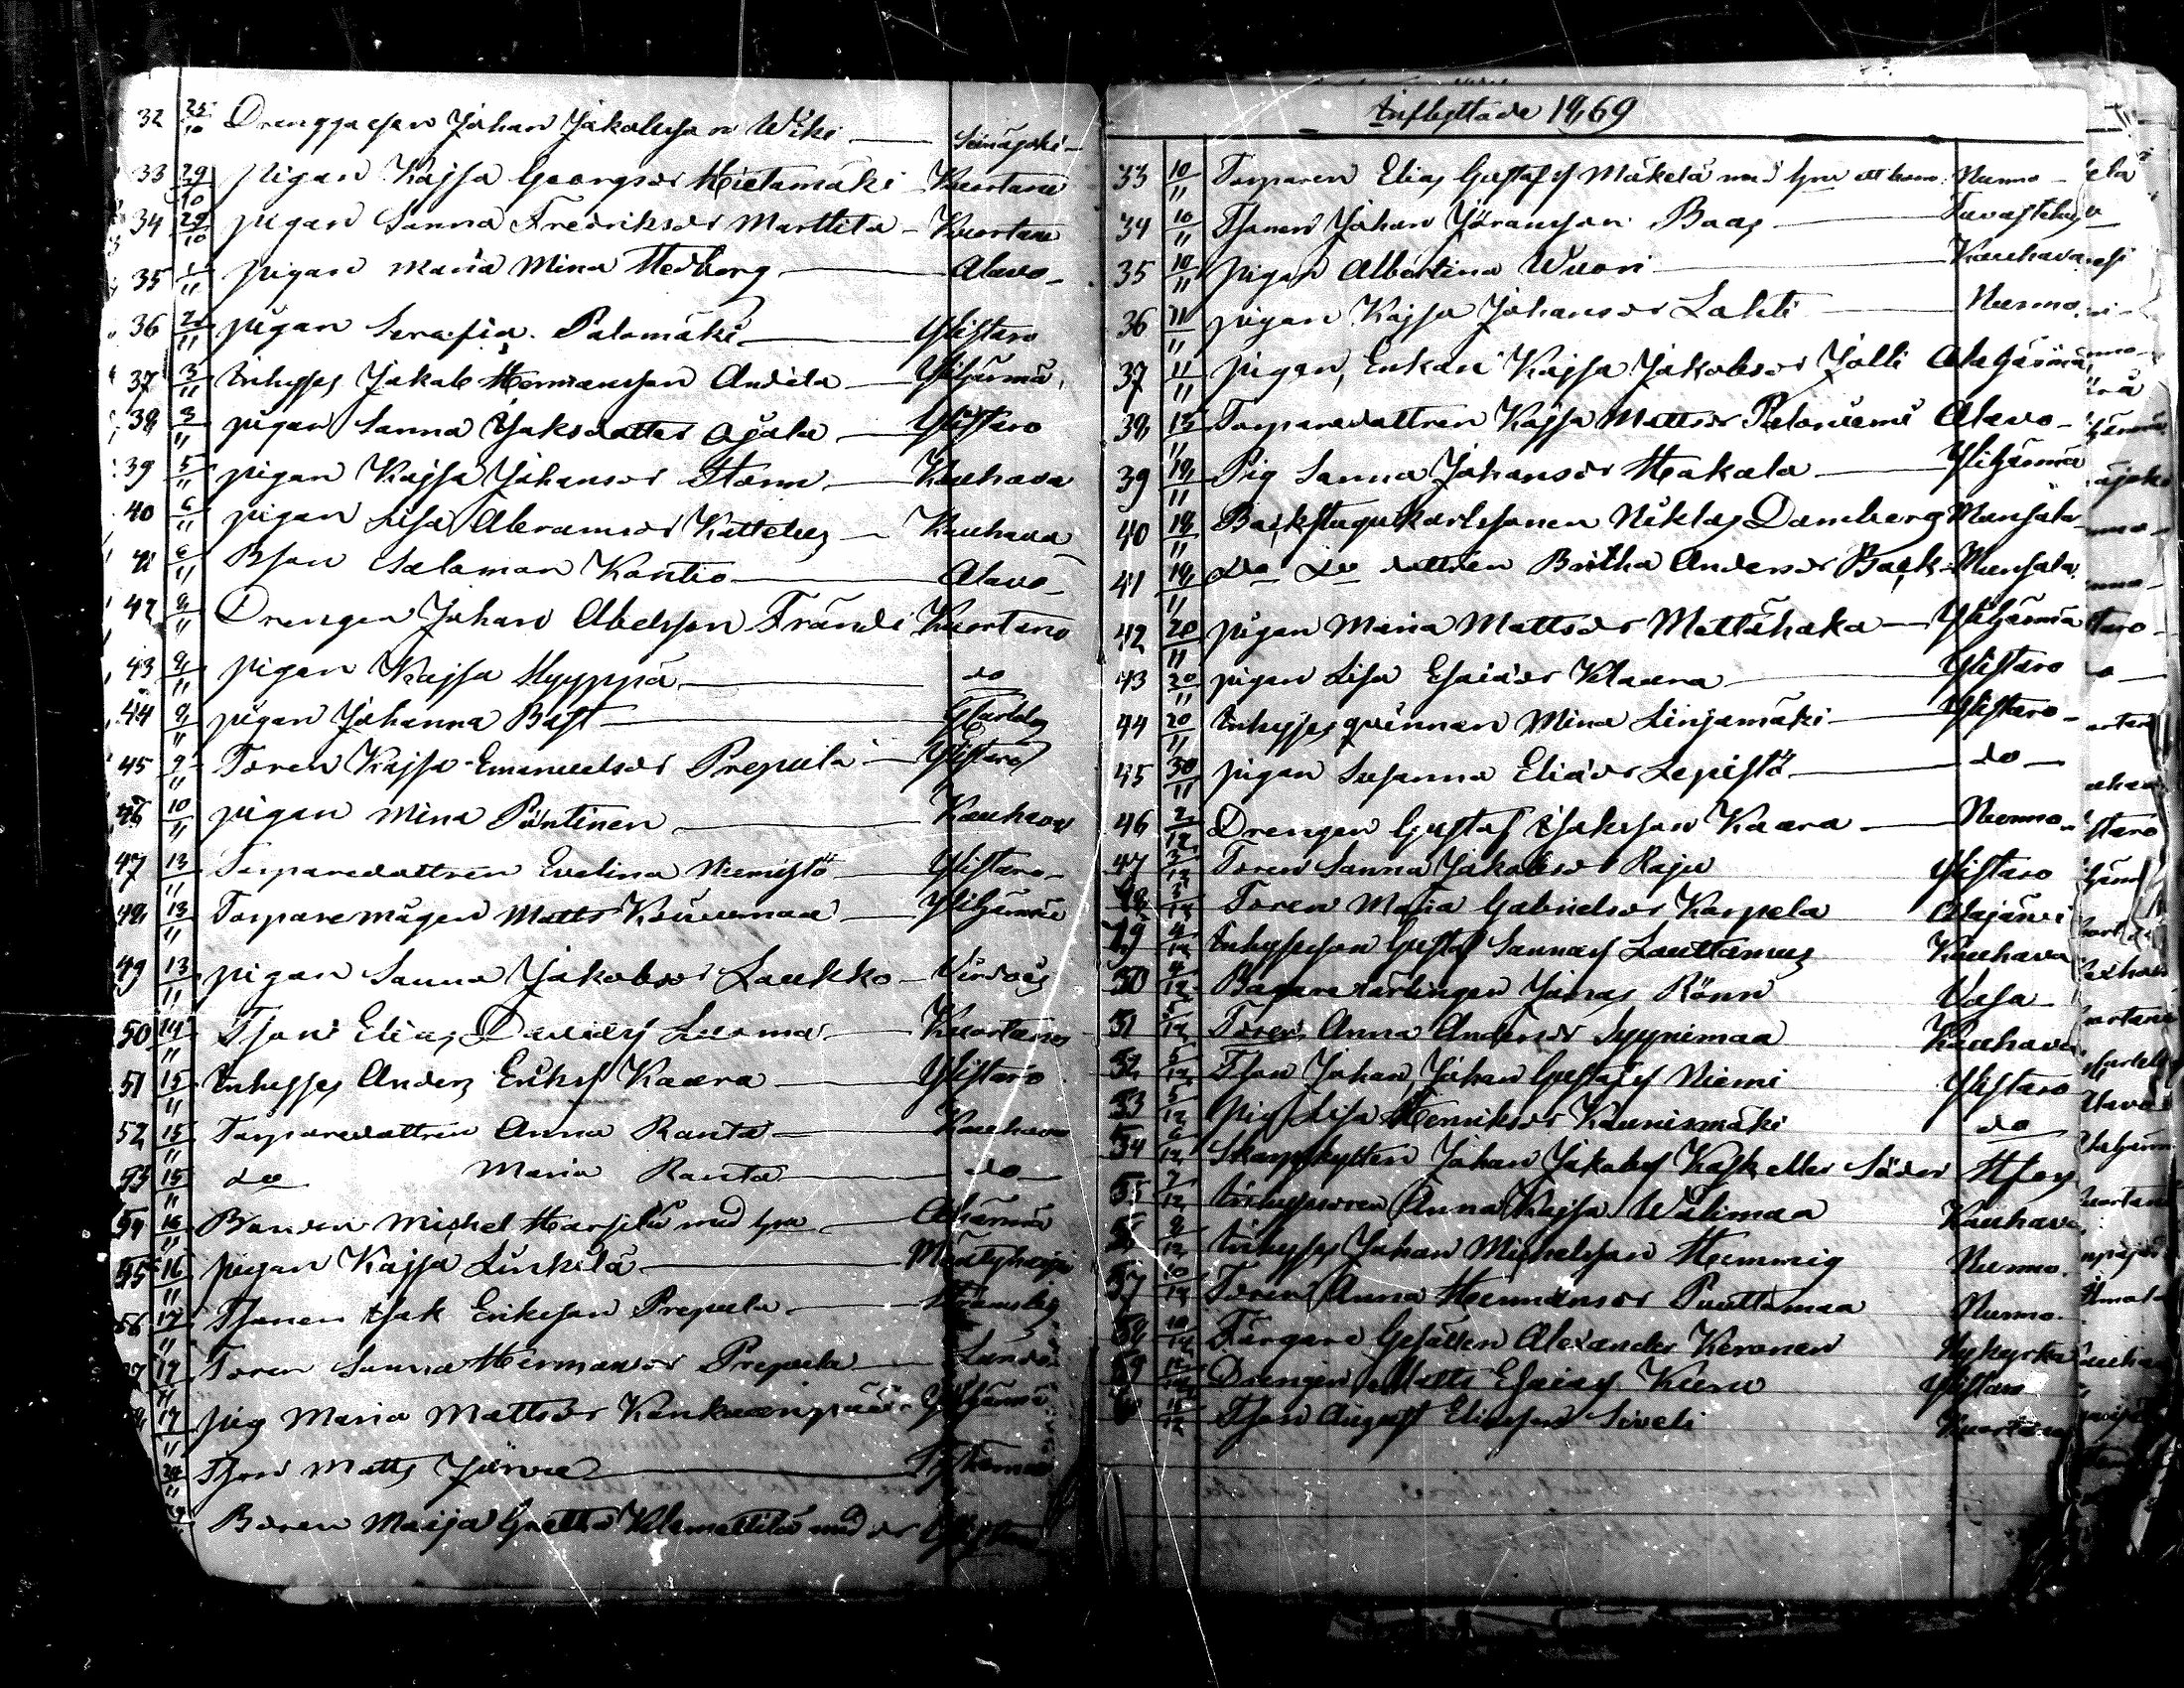 32 25/10 Drenggossen Johan Jakobsson Wiki — Seinäjoki —
33 29/10 pigan Kajsa Georgsdr Hietamäki Kuortane
34 29/10 pigan Sanna Fredriksdr Marttila — Kuortane
35 1/11 pigan Maria Mina Hedberg — Alavo —
36 2/11 pigan Serafia Palomäki — Ylistaro
37 3/11 Inhyses Jakob Hermansson Andila — Ylihärmä
38 3/11 pigan Sanna Isaksdotter Ojala — Ylistaro
39 5/11 pigan Kajsa Johansdr Storm — Kauhava
40 6/11 pigan Lisa Abramsdr Kattelus — Kauhava
41 6/11 Bson Salomon Kontio — Alavo —
42 9/11 Drengen Johan Abelsson Frändi Kuortane
43 9/11 pigan Kajsa Hyyppä — do
44 9/11 pigan Johanna Bäst —
45 9/11 Toren Kajsa Emanuelsdr Prepula — Ylistaro
46 10/11 pigan Mina Päntinen — Kauhava
47 13/11 Torparedottren Evelina Niemistö — Ylistaro —
48 13/11 Torparemågen Matts — Ylihärmä
49 13/11 pigan Sanna Jakobsdr Laukko — Virdois
50 14/11 Tson Elias Davidss Luoma — Kuortane
51 15/11 Inhyses Anders Erikss Kaara — Ylistaro
52 15/11 Torparedottren Anna Ranta — Kauhava
53 15/11 do Maria Ranta — do —
54 16/11 Bonden Michel Harjula med hru — Alahärmä
55 16/11 pigan Kajsa Linkilä — Mäntyharju
56 17/11 Tsonen Isak Eriksson Prepula —
57 17/11 Toren Sanna Hermansdr Prepula —
17/11 pig Maria Mattsdr Kankaanpää — Ylihärmä
Tson Matts Järvue —
Boren Maija Gretha Klemettilä med dr
Inflyttade 1869
33 10/11 Torparen Elias Gustafss Mäkelä med hru ett barn Nurmo —
34 10/11 Tsonen Johan Jöransson Baas — Tavastehus
35 10/11 pigan Albertina Wuori — Kauhava
36 11/11 pigan Kajsa Johansdr Lahti — Nurmo
37 11/11 pigan, Enkan Kajsa Jakobsdr Jolli Alahärmä
38 13/11 Torparedottren Kajsa Mattsdr Paloniemi Alavo —
39 18/11 Pig Sanna Johansdr Hakala — Ylihärmä
40 18/11 Backstugukarlssonen Niklas Damberg Munsala
41 18/11 do do dottren Britha Andersdr Back — Munsala
42 20/11 pigan Maria Mattsdr Mettähaka — Ylihärmä
43 20/11 pigan Lisa Esaiädr Klaara — Ylistaro
44 20/11 Inhysesqvinnan Mina Linjamäki — Ylistaro —
45 30/11 pigan Susanna Eliädr Lepistö — do —
46 2/12 Drengen Gustaf Isaksson Kaara — Nurmo
47 3/12 Toren Sanna Jakobsdr Raju Ylistaro
48 3/12 Toren Maja Gabrielsdr Karpela Alajärvi
49 4/12 Inhysesson Gustaf Sannass Lauttamus Kauhava
50 4/12 Bagare lärlingen Jonas Rönn Vasa —
51 5/12 Toren Anna Andersdr Syynimaa Kauhava
52 5/12 Tson Johan Johan Gustafss Niemi Ylistaro
53 5/12 Pig Lisa Henriksdr Kaunismäki do
54 6/12 Skarpskytten Johan Jakobss Kask eller Söder
55 7/12 Inhysesdren Anna Kajsa Wälimaa Kauhava
56 9/12 Inhyses Johan Michelsson Hemmig Nurmo.
57 10/12 Toren Anna Hermansdr Puuttamaa Nurmo.
58 10/12 Färgare Gesällen Alexander Keronen Nykyrka
59 Drengen Matts Esaiass Kuru Ylistaro
60 Tson August Eliasson Siveli Kuortane